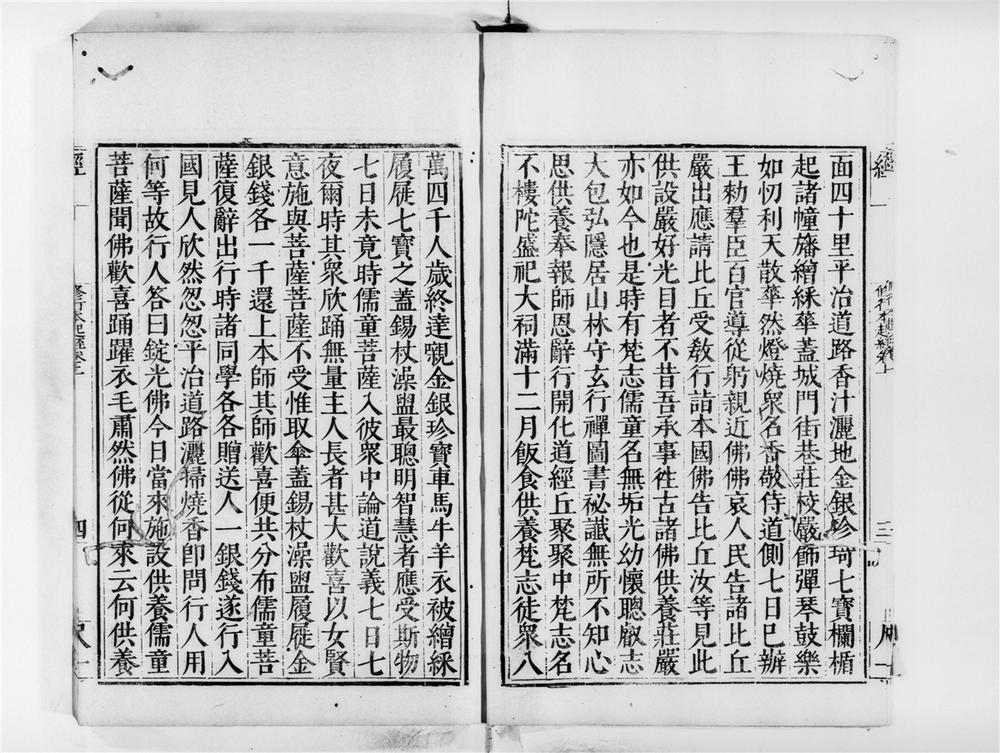 面四十里平治道路香汁灑地金銀珍琦七寶欄楯
起諸幢旛繒綵華蓋城門街巷莊校嚴飾彈琴鼓樂
如忉利天散華然燈燒衆名香敬侍道側七日已辦
王勑羣臣百官導從躬親近佛佛哀人民告諸比丘
嚴出應請比丘受敎行詣本國佛告比丘汝等見此
供設嚴好光目者不昔吾承事徃古諸佛供養莊嚴
亦如今也是時有梵志儒童名無垢光幼懷聰叡志
大包弘隱居山林守玄行禪圖書祕讖無所不知心
思供養奉報師恩辭行開化道經丘聚聚中梵志名
不樓陀盛祀大祠滿十二月飯食供養梵志徒衆八
經
三
萬四千人歲終達嚫金銀珍寶車馬牛羊衣被繒綵
履屣七寶之蓋錫杖澡盥最聰明智慧者應受斯物
七日未竟時儒童菩薩入彼衆中論道說義七日七
夜爾時其衆欣踊無量主人長者甚大歡喜以女賢
意施與菩薩菩薩不受惟取傘蓋錫杖澡盥履屣金
銀錢各一千還上本師其師歡喜便共分布儒童菩
薩復辭出行時諸同學各各贈送人一銀錢遂行入
國見人欣然忽忽平治道路灑掃燒香卽問行人用
何等故行人答曰錠光佛今日當來施設供養儒童
菩薩聞佛歡喜踊躍衣毛肅然佛從何來云何供養
四